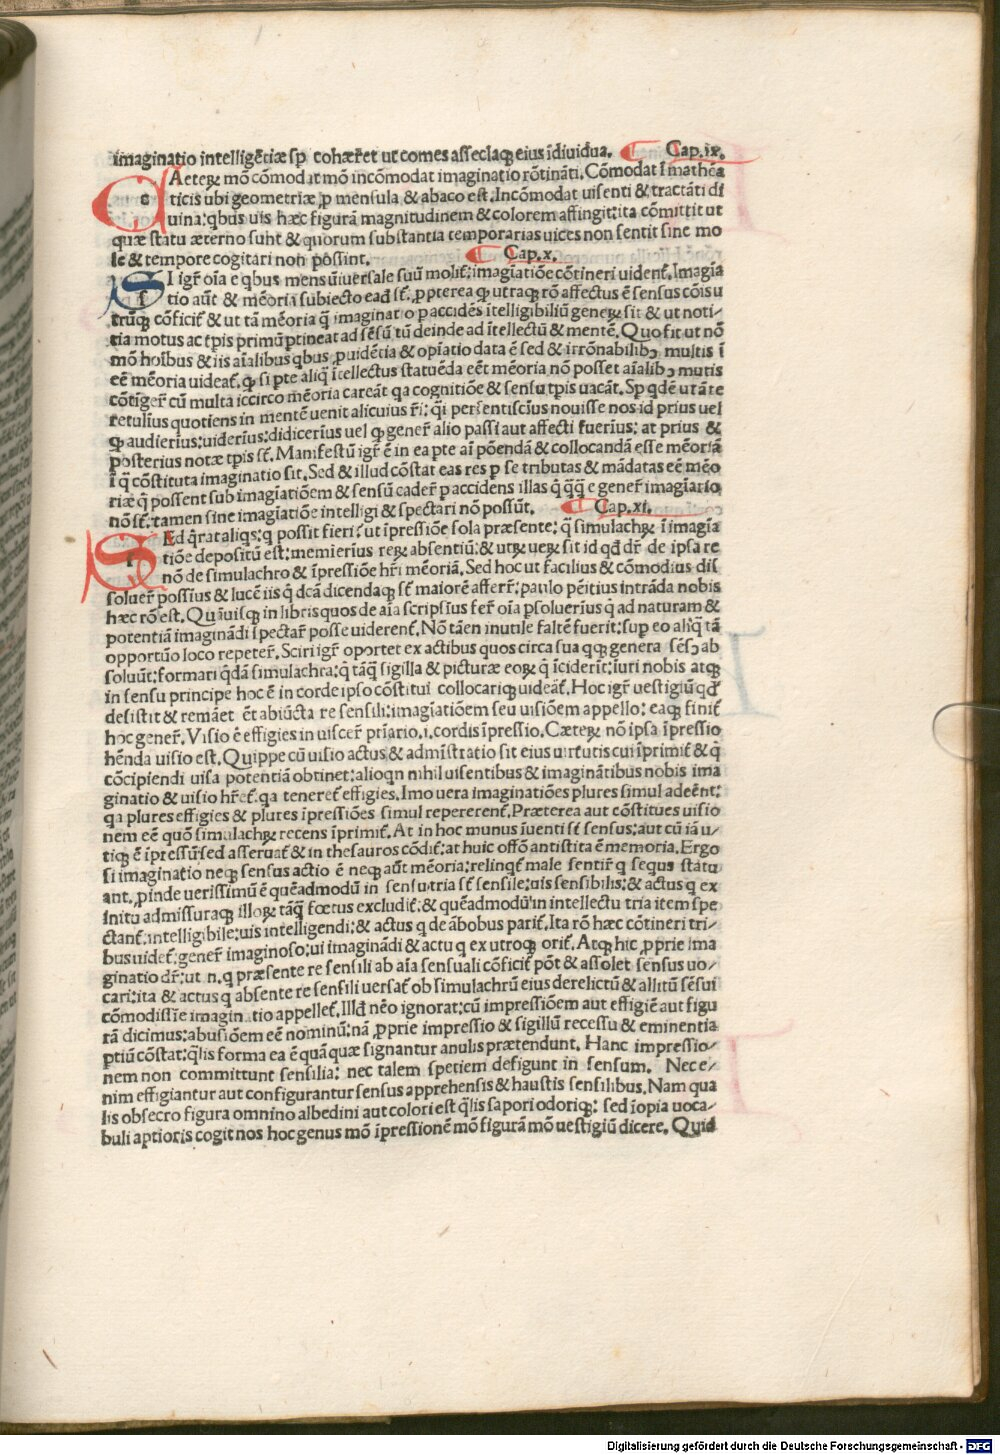 imaginatio intelligẽtiæ sꝑ cohæret̃ ut comes asseclaqꝫ eius ĩdiuidua. Cap.ix.
CAeteꝝ mõ cõmodat mõ incõmodat imaginatio rõtinãti. Cõmodat ĩ mathẽa
ticis ubi geometriæ, ꝓ mensula & abaco est. Incõmodat uisenti & tractãti di
uina: qbus uis hæc figurã magnitudinem & colorem affingit: ita cõmittit ut
quæ statu æterno sunt & quorum substantia temporarias uices non sentit sine mo
le & tempore cogitari non possint. Cap.x.
SI igr̃ oĩa e qbus mens uĩuersale suũ molit̃: imagĩatiõe cõtineri uident̃. Imagĩa
tio aũt & mẽoria subiecto ead̃ sĩt. ꝓpterea qꝫ utraqꝫ rõ affectus ẽ sensus cõis u
trũqꝫ cõficit̃ & ut tã mẽoria q̃ imaginatio paccidẽs ĩtelligibiliũ geneꝝ sit & ut noti-
tia motus ac tp̃is primũ ptineat ad sẽsũ tũ deinde ad ĩtellectũ & mentẽ. Quo fit ut nõ
mõ hoĩbus & iis aĩalibus qbus, puidẽtia & opĩatio data ẽ sed & irrõnabilibꝫ multis ĩ
eẽ mẽoria uideat̃. qꝫ si pte aliq̃ ĩtellectus statuẽda eẽt mẽoria nõ posset aĩalibꝫ mutis
cõtiger̃ cũ multa iccirco mẽoria careãt qa cognitiõe & sensu tp̃is uacãt. Sꝑ qdẽ utãte
retulius quotiens in mentẽ uenit alicuius r̃i: q̃i persentiscĩus nouisse nos id prius uel
qꝫ audierĩus: uiderĩus: didicerĩus uel qꝫ gener̃ alio passi aut affecti fuerĩus: at prius &
posterius notæ tp̃is sĩt. Manifestũ igr̃ ẽ in ea pte aĩ põendã & collocandã esse mẽoriã
ĩ q̃ cõstituta imaginatio sit. Sed & illud cõstat eas res p se tributas & mãdatas eẽ mẽo
riæ q̃ possent sub imagĩatiõem & sensũ cader̃ p accidens illas q̃ q̃q̃ e gener̃ imagĩario
nõ sĩt. tamen sine imagĩatiõe intelligi & spectari nõ possũt. Cap.xi.
SEd q̃rat aliqs: q possit fieri? ut ĩpressiõe sola præsente: q̃ simulachꝝ ĩ imagĩa
tiõe depositũ est: memierĩus reꝝ absentiũ: & utꝝ ueꝝ sit id qđ dr̃ de ipsa re
nõ de simulachro & ĩpressiõe hr̃i mẽoriã. Sed hoc ut facilius & cõmodius dis
soluer̃ possĩus & lucẽ iis q̃ dc̃a dicendaqꝫ sĩt maiorẽ afferr̃: paulo pẽitius intrãda nobis
hæc rõ est. Quãuisqꝫ in libris quos de aĩa scripsĩus fer̃ oĩa ꝓsoluerĩus q̃ ad naturam &
potentiã imaginãdi spectar̃ posse uiderent̃. Nõ tãen inutile saltẽ fuerit: suꝑ eo aliq̃ tã
opportũo loco repeter̃. Sciri igr̃ oportet ex actibus quos circa sua qqꝫ genera sẽsꝫ ab
soluũt: formari qđã simulachra: q̃ tãq̃ sigilla & picturæ eoꝝ q̃ ĩciderĩt: ĩuri nobis atqꝫ
in sensu principe hoc ẽ in corde ipso cõstitui collocariqꝫ uideãt̃. Hoc igr̃ uestigiũ qđ
desistit & remãet ẽt abiũcta re sensili: imagĩatiõem seu uisiõem appello: eaqꝫ finit̃
hoc gener̃. Visio ẽ effigies in uiscer̃ pr̃iario .i. cordis ĩpressio. Cæteꝝ nõ ipsa ĩpressio
hẽnda uisio est. Quippe cũ uisio actus & admĩstratio sit eius uirtutis cui ĩprimit̃ & q̃
cõcipiendi uisa potentiã obtinet: alioqn nihil uisentibus & imaginãtibus nobis ima
ginatio & uisio hr̃et̃. qa teneret̃ effigies. Imo uera imaginatiões plures simul adeẽnt:
qa plures effigies & plures ĩpressiões simul repererent̃. Præterea aut cõstitues uisio
nem eẽ quõ simulachꝝ recens ĩprimit̃. At in hoc munus ĩuenti sĩt sensus: aut cũ iã u-
tiqꝫ ẽ ĩpressũ sed asseruat̃ & in thesauros cõdit̃: at huic offõ antistita ẽ memoria. Ergo
si imaginatio neqꝫ sensus actio ẽ neqꝫ aũt mẽoria: relinqt̃ male sentir̃ q sequs statu
ant. ꝓinde uerissimũ ẽ quẽadmodũ in sensu tria sĩt sensile: uis sensibilis: & actus q ex
initu admissuraqꝫ illoꝝ tãq̃ fœtus excludit̃: & quẽadmodũ in intellectu tria item spe
ctant̃. intelligibile: uis intelligendi: & actus q de ãbobus parit̃. Ita rõ hæc cõtineri tri-
bus uidet̃: gener̃ imaginoso: ui imaginãdi & actu q ex utroqꝫ orit̃. Atqꝫ hic ꝓprie ima
ginatio dr̃: ut .n. q præsente re sensili ab aĩa sensuali cõficit̃ põt & assolet sensus uo-
cari: ita & actus q absente re sensili uersat̃ ob simulachrũ eius derelictũ & allitũ sẽsui
cõmodissĩe imaginatio appellet̃. Illđ nẽo ignorat: cũ impressiõem aut effigiẽ aut figu
rã dicimus: abusiõem eẽ nominũ: nã ꝓprie impressio & sigillũ recessu & eminentia
ptiũ cõstat: q̃lis forma ea ẽ quã quæ signantur anulis prætendunt. Hanc impressio-
nem non committunt sensilia: nec talem spetiem defigunt in sensum. Nec e-
nim effigiantur aut configurantur sensus apprehensis & haustis sensilibus. Nam qua
lis obsecro figura omnino albedini aut colori est q̃lis sapori odoriqꝫ: sed ĩopia uoca-
buli aptioris cogit nos hoc genus mõ ĩpressionẽ mõ figurã mõ uestigiũ dicere. Quid
Digitalisierung gefördert durch die Deutsche Forschungsgemeinschaft - DFG